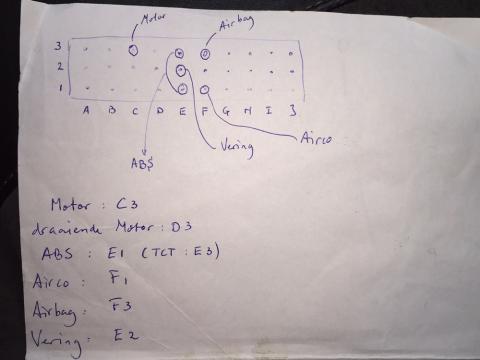 Motor
Airbag
3
2
1
A B C D E F G H I J
ABS
Vering
Airco
Motor : C3
draaiende Motor : D3
ABS : E1 (TCT : E3)
Airco : F1
Airbag : F3
Vering : E2